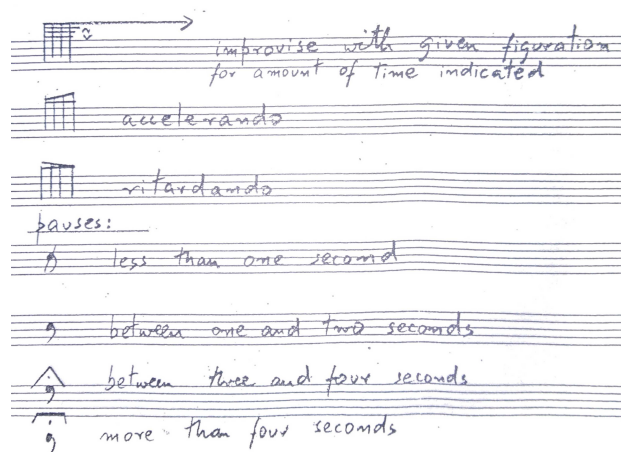 improvise with given figuration
for amount of time indicated
accelerando
ritardando
pauses:
less than one second
between one and two seconds
between three and four seconds
more than four seconds